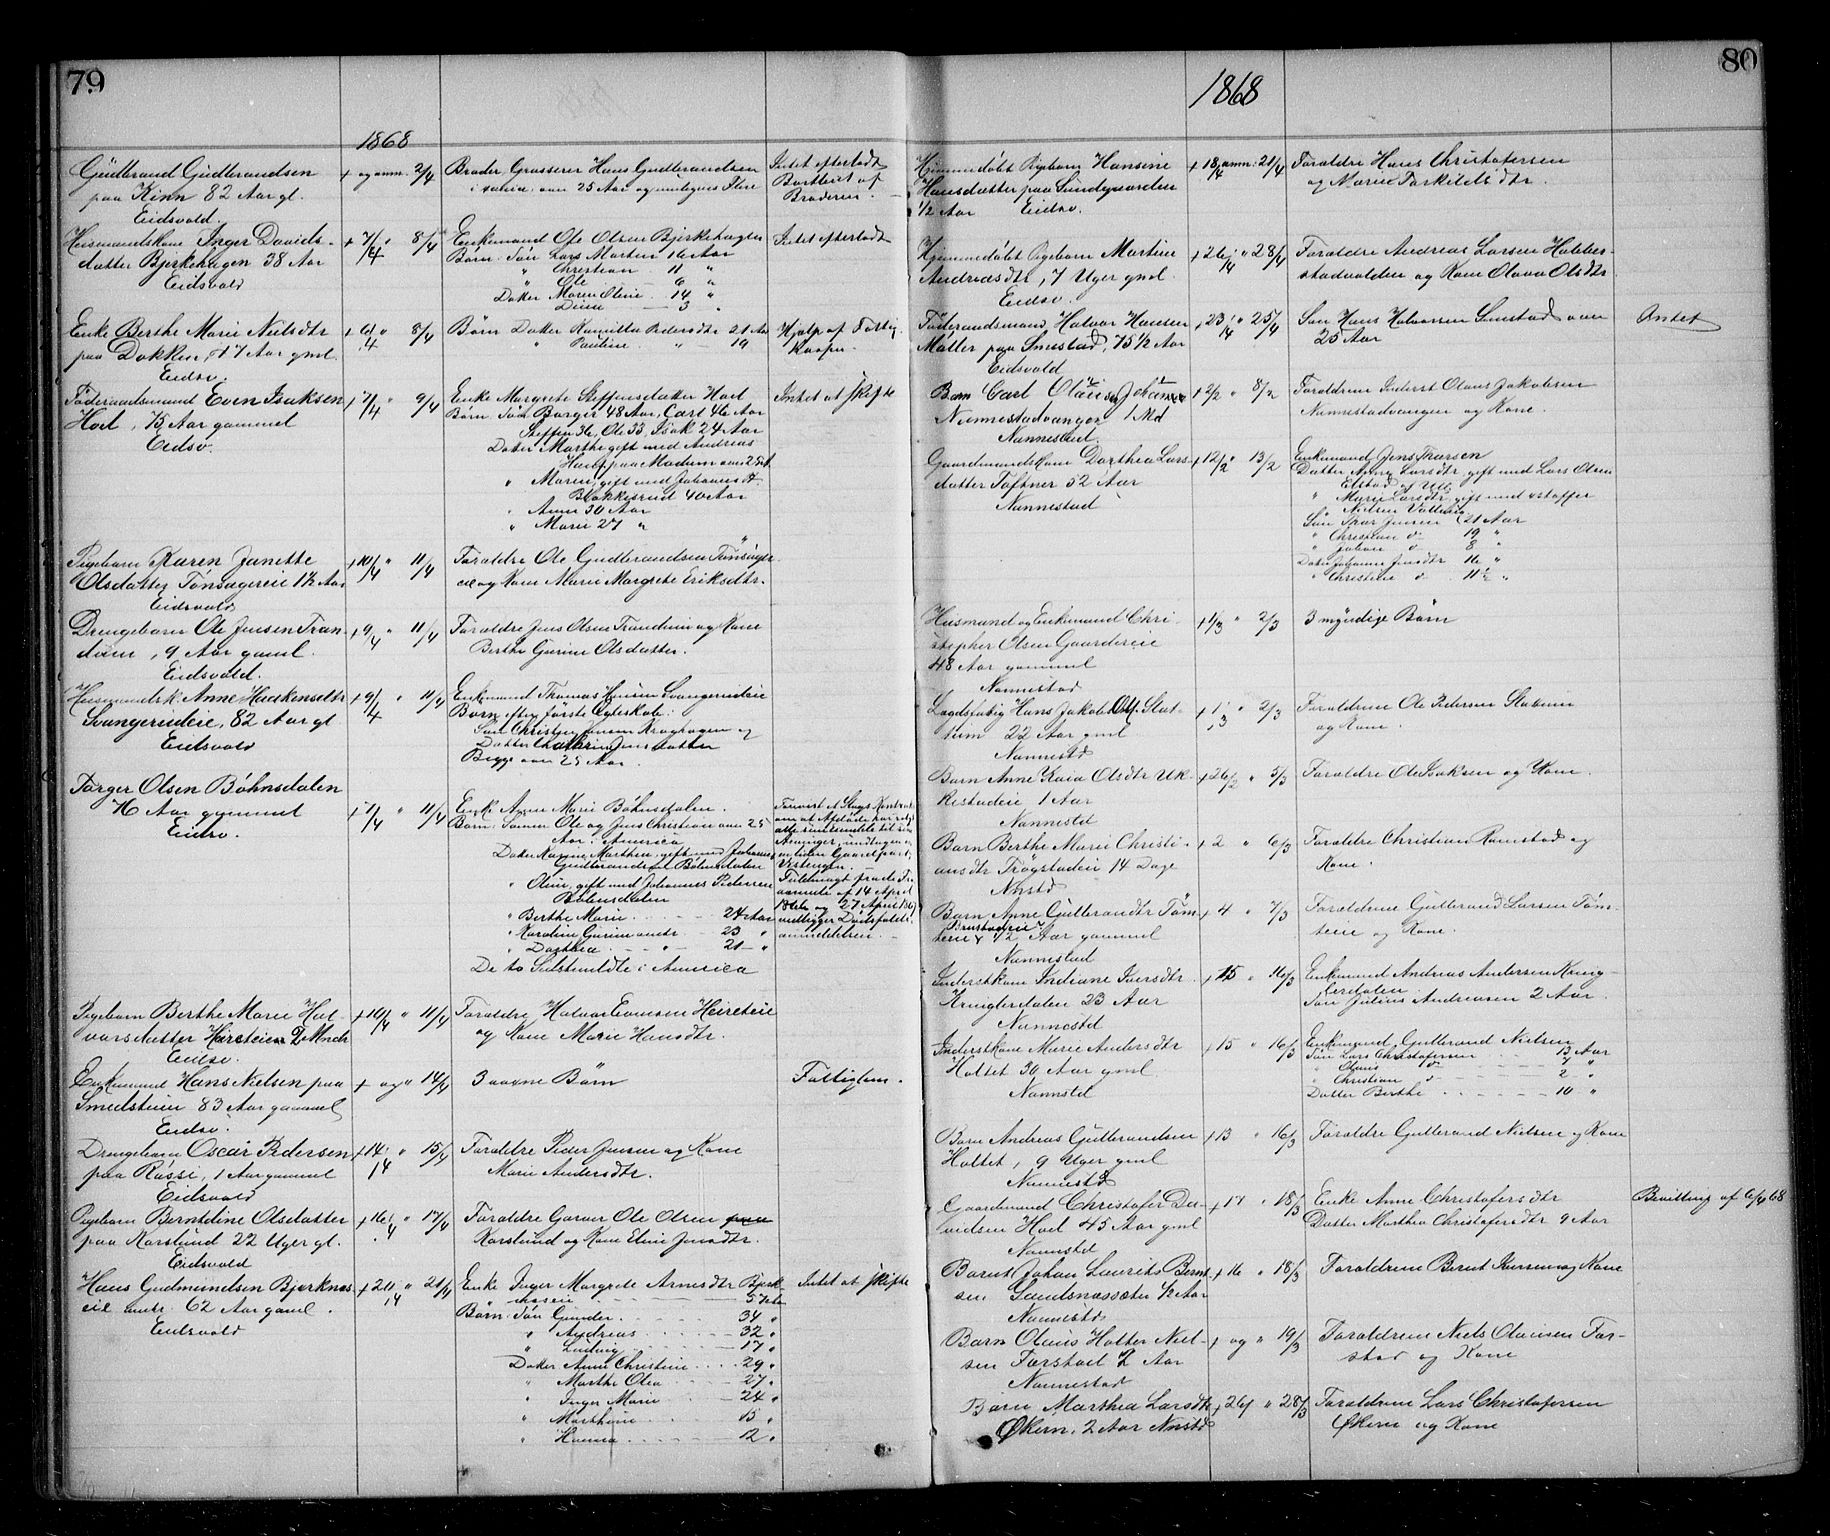 79
1868
Gudbrand Gudbrandsen
paa Kinn 82 Aar gl.
Eidsvold.
+ og anm. 2/4
Broder Grosserer Hans Gudbrandsen
over 25 Aar og muligens Flere
Intet efterladt
Bortleiet af
Broderen.
Husmandskone Inger Davids-
datter Bjerkehagen 38 Aar
Eidsvold
+ 7/4 " 8/4
Enkemand Ole Olsen Bjerkehagen
Børn: Søn Lars Martin 16 Aar
" Christian 11 "
" Ole 6 "
Datter Maren Oline 14 "
" 3 "
Intet efterladt
Enke Berthe Marie Nielsdtr
paa Dokken, 47 Aar gml.
Eidsv.
+ 6/4 " 8/4
Børn Datter Kamilla Pedersdtr 21 Aar
" Pauline " 19
Hjælp af Fattig-
kassen.
Føderaadsmand Even Isaksen
Hoel, 75 Aar gammel
Eidsv.
+ 7/4 9/4
Enke Margrete Steffensdatter Hoel
Børn: Søn Borger 48 Aar, Carl 46 Aar
Steffen 36, Ole 33, Isak 24 Aar
Datter Marthe gift med Andreas
paa Modum over 25 Aar
" Maren, gift med Johannes
Bakkerud 40 Aar
" Anne 30 Aar
" Marie 27 "
Intet at skifte
Pigebarn Karen Janette
Olsdatter Tønsagereie 1½ Aar
Eidsvold
+ 10/4 " 11/4
Forældre Ole Gudbrandsen Tønsager-
eie og Kone Marie Margrete Eriksdtr.
Drengebarn Ole Jensen Tran-
dum, 9 Aar gaml.
Eidsvold.
+ 9/4 " 11/4
Forældre Jens Olsen Trandum og Kone
Berthe Gurine Olsdatter.
Husmandsk. Anne Haakensdtr
Svangerudeie, 82 Aar gl
Eidsvold
+ 9/4 " 11/4
Enkemand Thomas Hansen Svangerudeie
Børn efter første Ægteskab:
Søn Christian Jensen Kraghagen og
Datter Cathrine Jensdatter
Begge over 25 Aar.
Torger Olsen Bøhnsdalen
76 Aar gammel
Eidsv.
+ 7/4 " 11/4
Enke Anne Marie Bøhnsdalen.
Børn: Sønner Ole og Jens Christian over 25
Aar i America
Datter Karine Marthea gift med Johannes
Gudbrandsen Bøhnsdalen
" Oline, gift med Johannes Pedersen
Bøhnsdalen
" Berthe Marie 24 Aar
" Karoline Gurine 23 "
" Dorthea " 21 "
De to Sidstmeldte i America
Fuldmagt fra de
af 14 April
og 27 April 1867
vedligger Dødsfalds-
anmeldelsen.
Pigebarn Berthe Marie Hal-
vorsdatter Heirsteieie 2 Mndr
Eidsv.
+ 10/4 " 11/4
Forældre Halvor Evensen Heirsteie
og Kone Marie Hansdtr.
Enkemand Hans Nielsen paa
Smedsteien 83 Aar gammel
Eidsv.
+ og " 14/4
3 voxne Børn
Fattiglem.
Drengebarn Oscar Pedersen
paa Raasse, 1 Aar gammel
Eidsvold
+ 14/4 " 15/4
Forældre Peder Jensen og Kone
Marie Andersdtr.
Pigebarn Berntdine Olsdatter
paa Korslund 22 Uger gl.
Eidsvold
+ 16/4 " 17/4
Forældre Garver Ole Olsen
Korslund og Kone Eline Jensdtr.
Hans Gudmundsen Bjerknes-
eie 62 Aar gaml.
Eidsvold
+ 20/4 " 21/4
Enke Inger Margrete Arnesdtr Bjerk-
neseie
Børn: Søn Gunder 34 "
" Andreas 32 "
" Ludvig 17 "
Datter Anne Christine 29 "
" Marthe Olea 27 "
" Inger Marie 24 "
" Marthine 15 "
" Hanna 12 "
Intet at skifte
80
1868
Hjemmedøbt Pigebarn Hansine
Hansdatter paa Lundgaarden
½ Aar Eidsv.
+ 18/4 anm: 21/4
Forældre Hans Christofersen
og Marie Torkildsdtr.
Hjemmedøbt Pigebarn Martine
Andreasdtr, 7 Uger gml.
Eidsv.
+ 26/4 " 28/4
Forældre Andreas Larsen
og Kone Olava Olsdtr
Føderaadsmand Halvor Hansen
Møller paa Smestad, 75½ Aar
Eidsvold
+ 23/4 " 25/4
Søn Hans Halvorsen Smestad over
25 Aar
Antat
Barn Carl Olaus Johansen
Nannestadvangen 1 Md
Nannestad.
+ 2/2 " 8/2
Forældrene Inderst Olaus Jakobsen
Nannestadvangen og Kone.
Gaardmandskone Dorthea Lars-
datter Toftner 52 Aar
Nannestad
+ 12/2 " 13/2
Enkemand Jens Thorsen
Datter Anne Larsdtr, gift med Lars Olsen
Elstad af Ull.
" Marie Larsdtr gift med Kristoffer
Nielsen
Søn Thor Jensen 21 Aar
" Christian d- 19 "
" Johan d- 8 "
Datter Johanne Jensdtr 16 "
" Christine d- 11½ "
Husmand og Enkemand Chri-
stopher Olsen Gaardereie
48 Aar gammel
Nannestad
+ 1/3 " 2/3
3 myndige Børn
Lægdsfattig Hans Jakob Ols. Slat-
tum 22 Aar gml
Nannestd
+ 1/3 " 2/3
Forældrene Ole Pedersen Slattum
og Kone.
Barn Anne Kaia Olsdtr Uk-
kestadeie, 1 Aar
Nannestd
+ 26/2 " 5/3
Forældre Ole Isaksen og Kone.
Barn Berthe Marie Christi-
ansdtr Trøgstadeie 14 Dage
Nnstd
+ 2 " 6/3
Forældre Christian Ramstad og
Kone.
Barn Anne Gulbrandsdtr Tøm-
teeie ½ Aar gammel
Nannestad
+ 4 " 7/3
Forældrene Gulbrand Larsen Tøm-
teeie og Kone.
Inderstkone Indiane Iversdtr
Kringlerdalen 23 Aar
Nannestd
+ 15 " 16/3
Enkemand Andreas Andersen Kring-
lerdalen.
Søn Julius Andreasen 2 Aar.
Inderstkone Marie Andersdtr
Holtet 30 Aar gml
Nannstd
+ 15 " 16/3
Enkemand Gulbrand Nielsen
Søn Lars Christofersen 13 Aar
" Olaus d- 7 "
" Christian d- 2 "
Datter Berthe 10 "
Barn Andreas Gulbrandsen
Holtet, 9 Uger gml
Nannestd
+ 13 " 16/3
Forældre Gulbrand Nielsen og Kone
Gaardmand Christofer Da-
vidsen Hoel 45 Aar gml
Nannstd
+ 17 " 18/3
Enke Anne Christofersdtr
Datter Marthea Christofersdtr 9 Aar
Bevilling af 6/4 68
Barnet Johan Laurits Bernt-
sen Sandsnessæter ½ Aar
Nannestd
+ 16 " 18/3
Forældrene Bernt Iversen og Kone
Barn Olaus Holter Niel-
sen Farstad 2 Aar
Nannestad
+ og " 19/3
Forældrene Niels Olausen Far-
stad og Kone
Barn Marthea Larsdtr
Økern, 2 Aar Nnstd
+ 26/ " 28/3
Forældrene Lars Christofersen
Økern og Kone